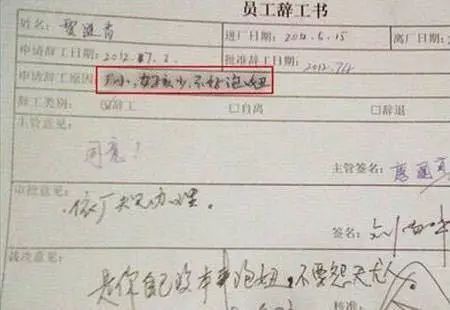 员工辞工书
姓名: 进厂日期: 2011.6.15 离厂日期:
申请辞工日期: 2012.07.2. 批准辞工日期: 2012.7.4
申请辞工原因: 厂小,女孩少,不好泡妞
辞工类别: ☑辞工 □自离 □辞退
主管意见:
同意!
主管签名:
审批意见:
依厂规办理。
签名:
是你自己没本事泡妞,不要怨天尤人。